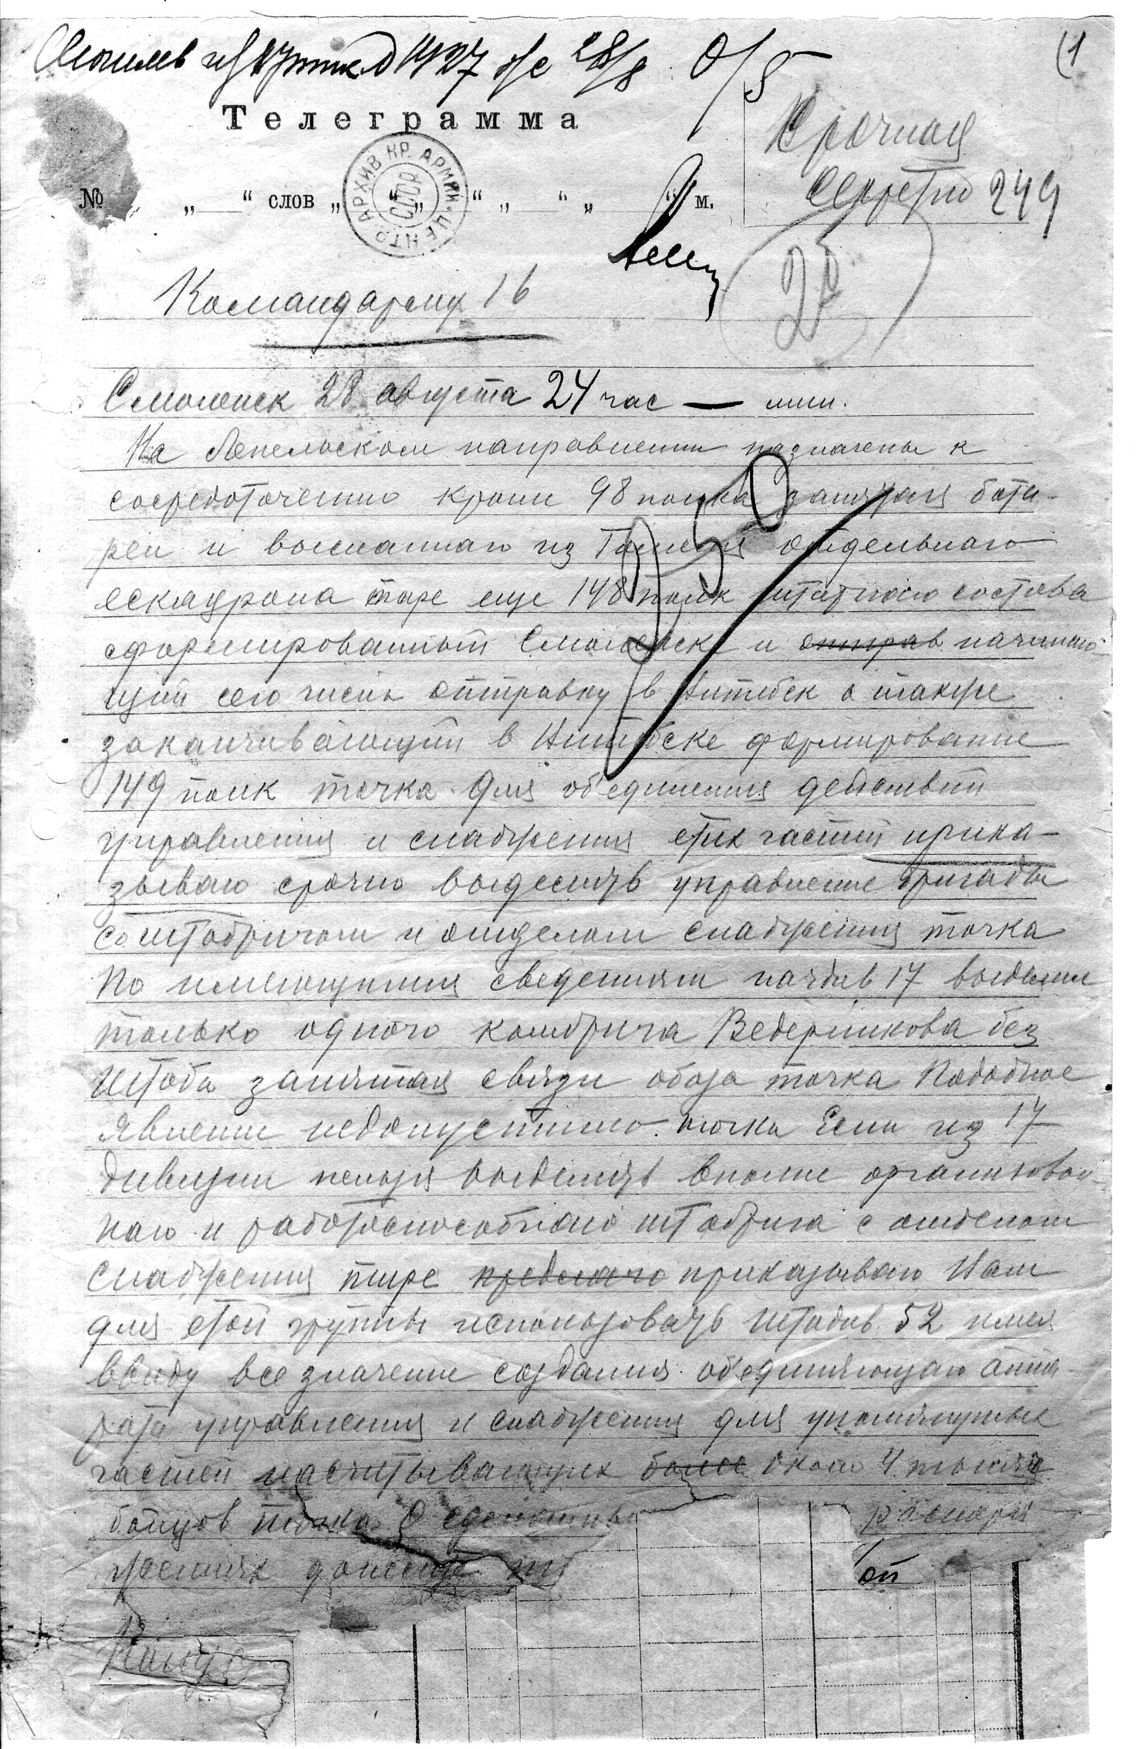 1927 28/8
(1
Телеграмма
Срочная
Секретно 249
№ „ “ слов „ “ „ “ „ “ „ “ м.
АРХИВ КР. АРМИИ ЦЕНТР.
Командарму 16
Смоленск 28 августа 24 час — мин.
На Лепельском направлении назначены к
сосредоточению кроме 98 полка батаи-
реи и высланнаго из отдельнаго
ескадрона тире еще 148 полк штатного состава
сформированный Смоленск и отправ начинаю-
щий сего числа отправку в Витебск а также
заканчивающий в Витебске формирование
149 полк точка Для об'единения действий
управления и снабжения етих частей прика-
зываю срочно выделить управление бригады
со штабригом и отделом снабжения точка
По имеющимся сведениям начдив 17 выделил
только одного комбрига Ведерникова без
Штаба занятая связи обоза точка Подобное
явление недопустимо точка Если из 17
дивизии нельзя выделить вполне организован-
наго и работоспособнаго штабрига с отделом
снабжения тире предлагаю приказываю Вам
для етой группы использовать Штадив 52 имея
ввиду все значение создания об'единяющаго аппа-
рата управления и снабжения для упомянутых
частей насчитывающих более около 4 тысяч
бойцов точка О распоря
жениях донести